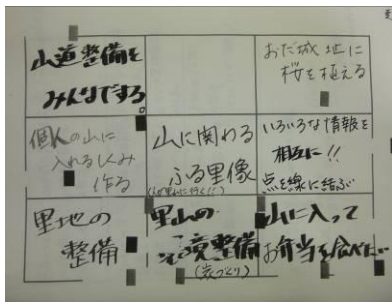 山道整備を
みんなでする。
おだ城地に
桜を植える
個人の山に
入れるしくみ
作る
山に関わる
ふる里像
いろいろな情報を
相互に!!
点を線に結ぶ
里地の
整備
里山の
整備
山に入って
お弁当を食べたい